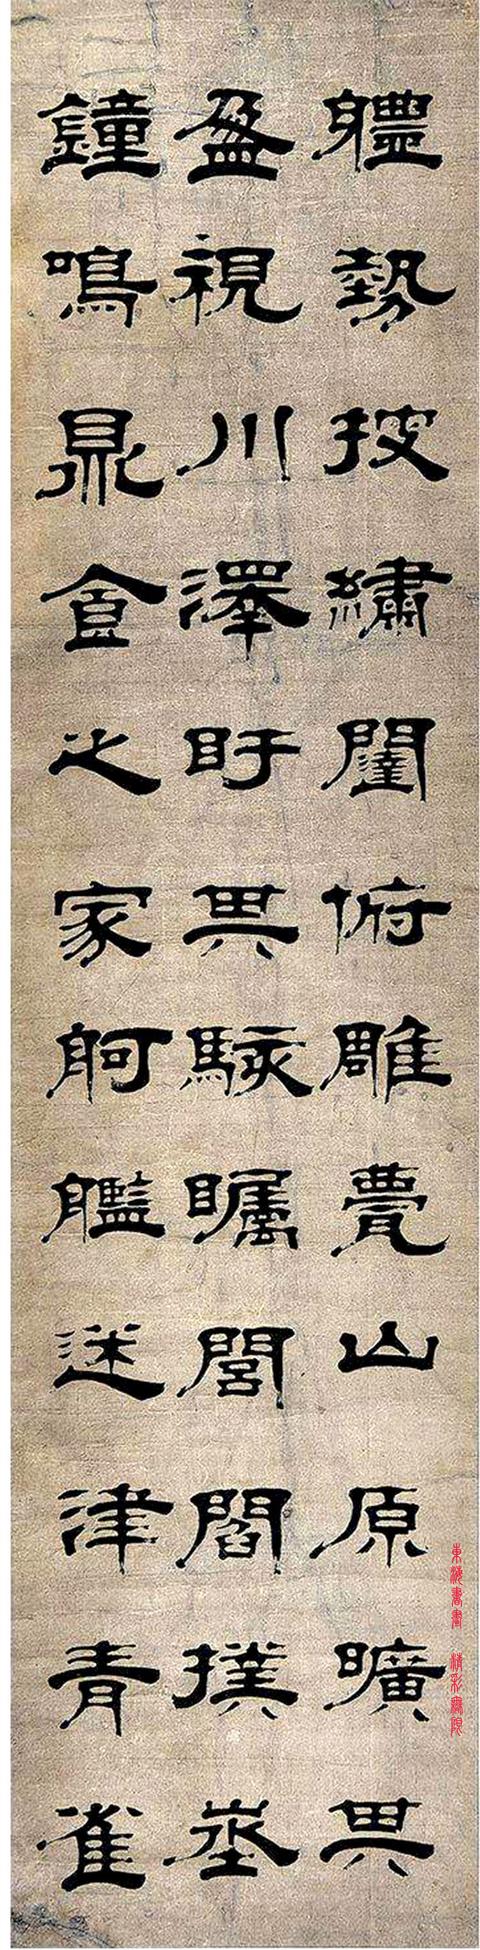 軆勢披繡闥俯雕甍山原曠其
盈視川澤盱其駭矚閭閻撲埊
鐘鳴鼎食之家舸艦迷津青雀
東海書畫 精彩無限